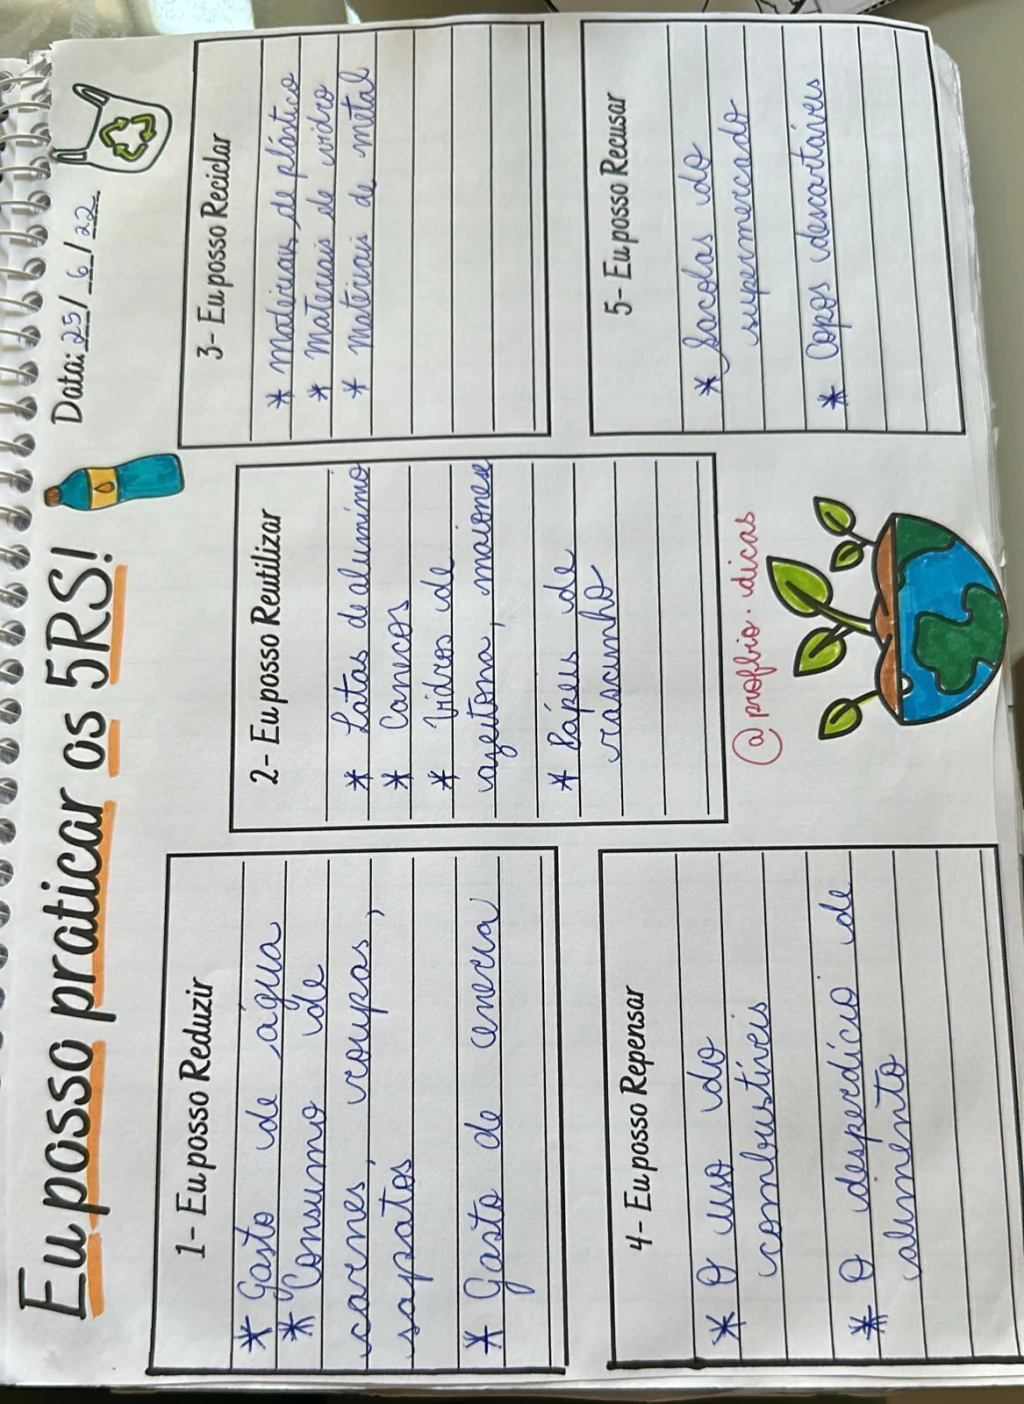 Eu posso praticar os 5RS!
Data: 25/6/22
1- Eu posso Reduzir
* Gasto de água
* Consumo de
carnes, roupas,
sapatos
* Gasto de energia
2- Eu posso Reutilizar
* Latas de alumínio
* Canecos
* Vidros de
azeitona, maionese
* Papéis de
rascunho
3- Eu posso Reciclar
* materiais de plástico
* Materiais de vidro
* Materiais de metal
4- Eu posso Repensar
* O uso do
combustíveis
* O desperdício de
alimento
5- Eu posso Recusar
* Sacolas do
supermercado
* Copos descartáveis
@profbio.dicas